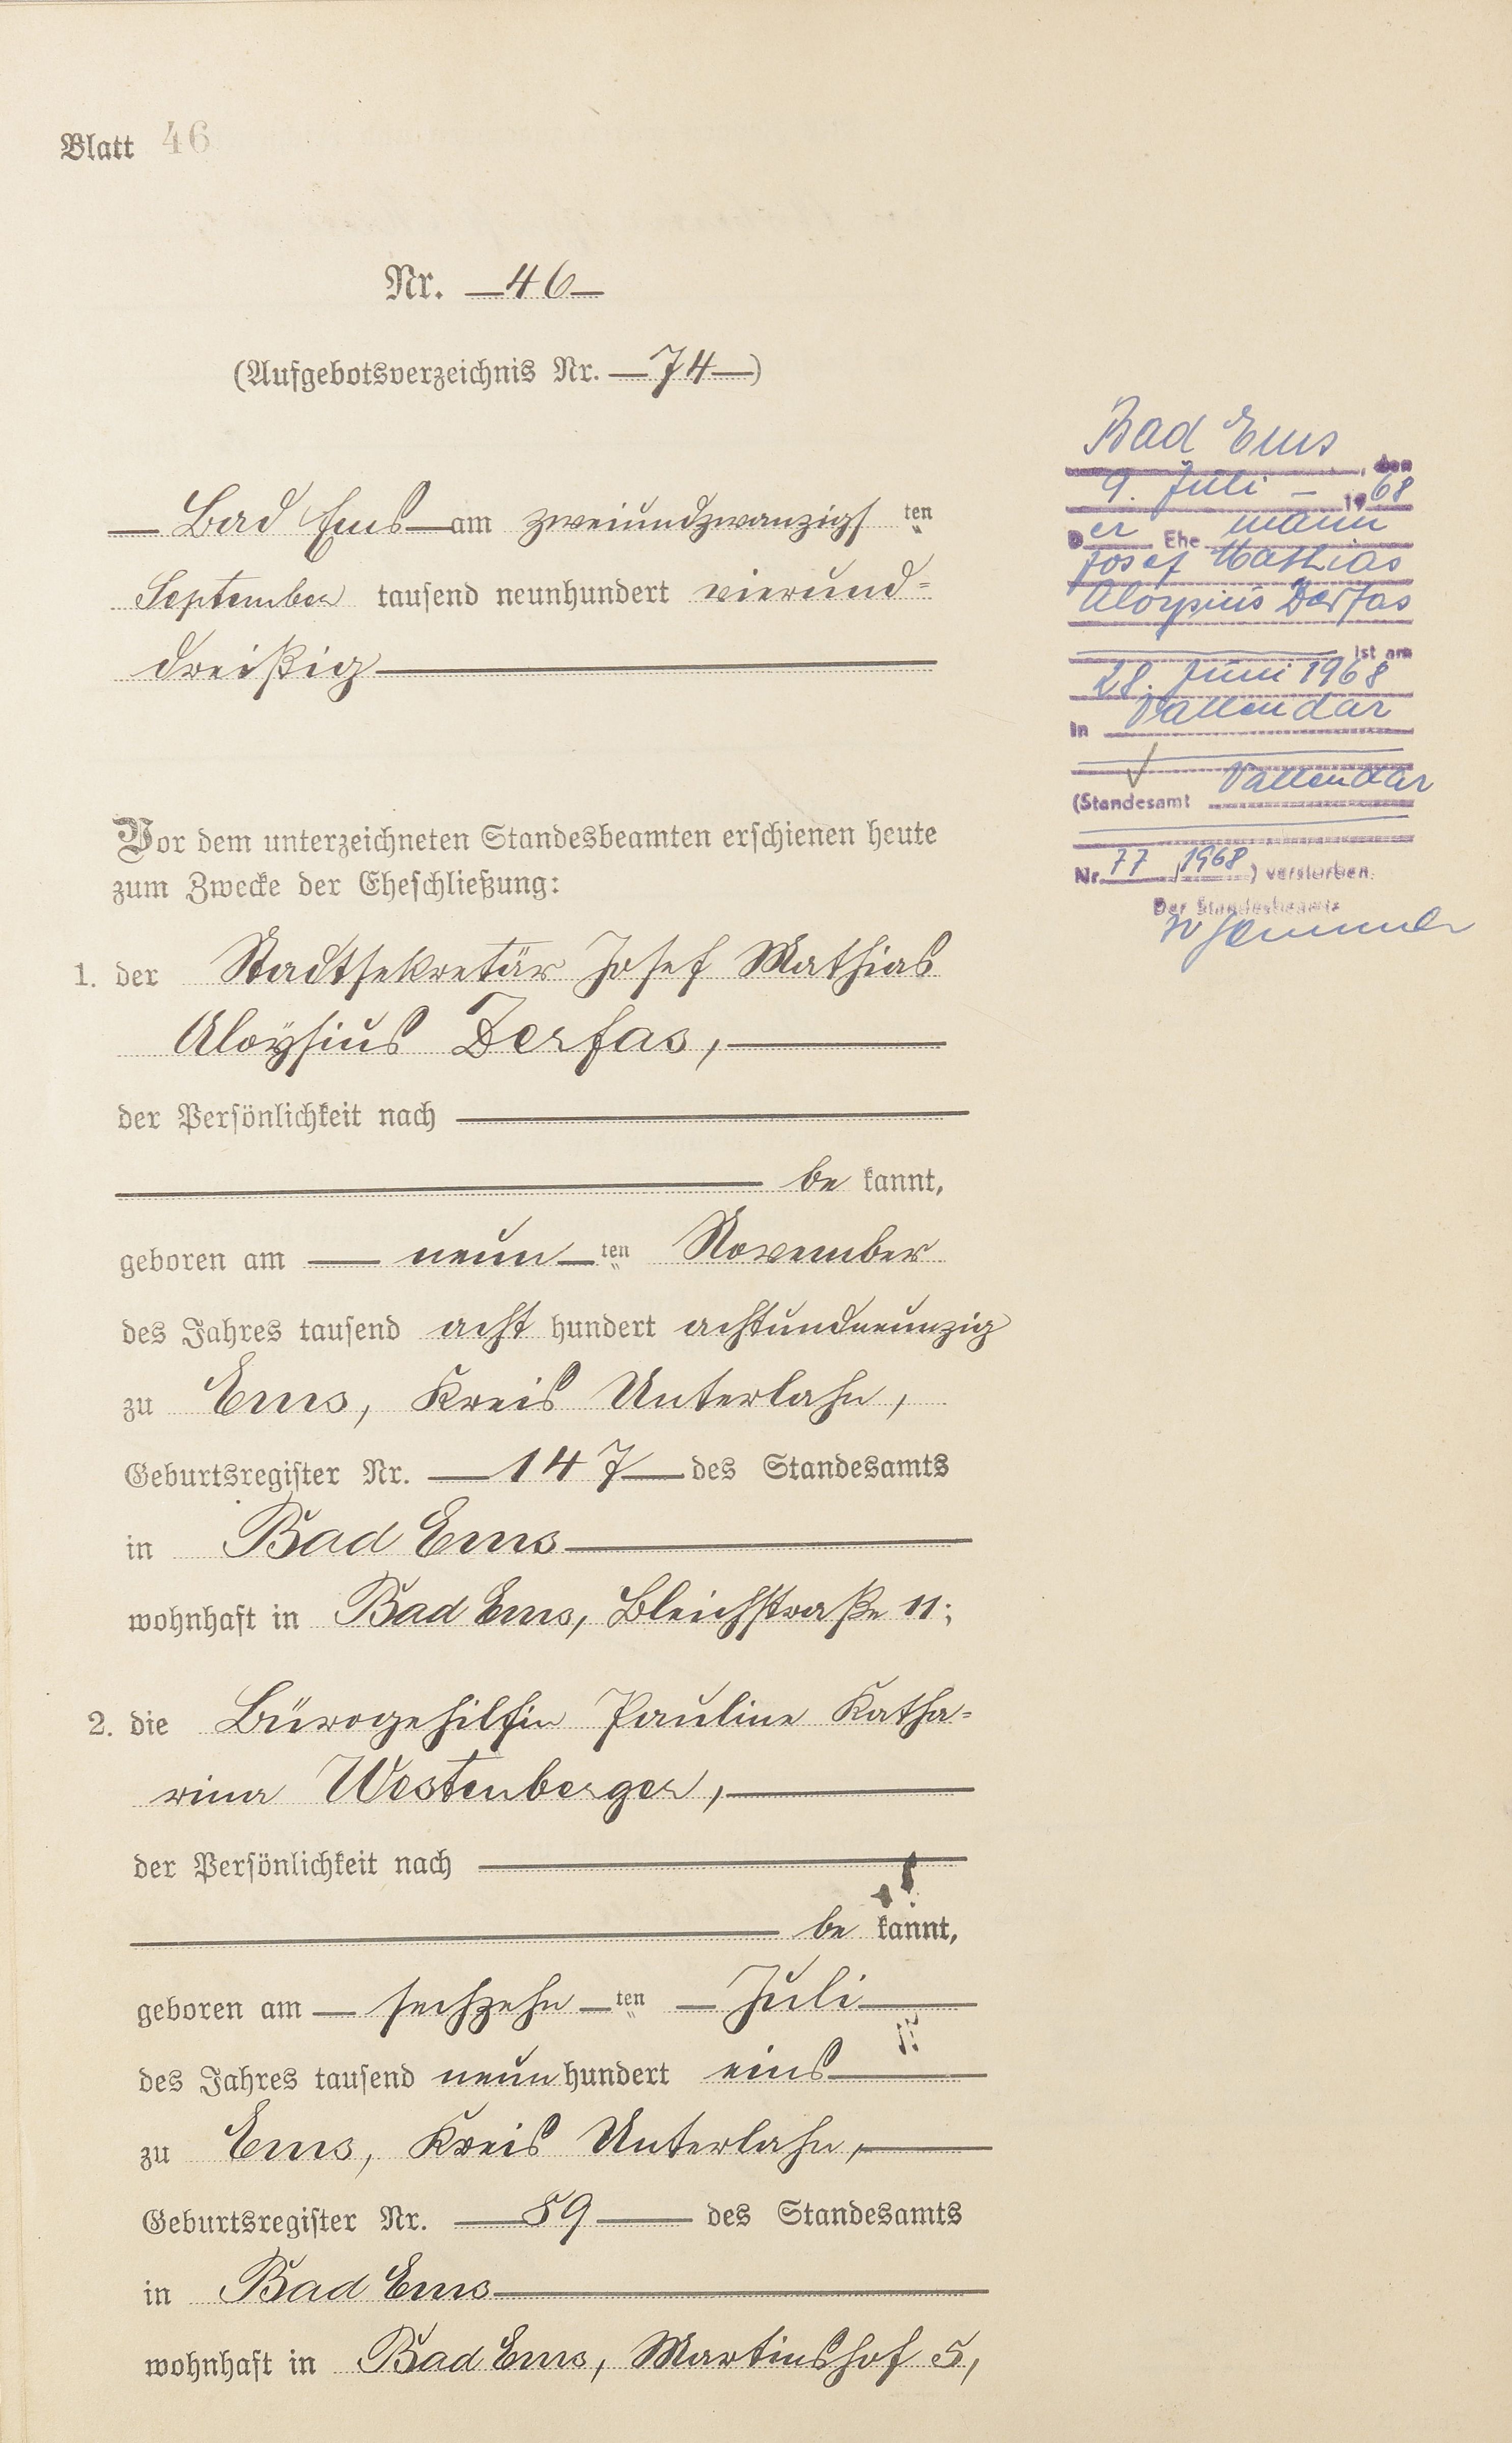 Blatt 46
Nr. 46
(Aufgebotsverzeichnis Nr. 74)
Bad Ems am zweiundzwanzigs ten
September tausend neunhundert vierund=
dreißig
Vor dem unterzeichneten Standesbeamten erschienen heute
zum Zwecke der Eheschließung:
1. der Stadtsekretär Josef Mathias
Aloysius Derfas,
der Persönlichkeit nach
be kannt,
geboren am neun ten November
des Jahres tausend acht hundert achtundneunzig
zu Ems, Kreis Unterlahn,
Geburtsregister Nr. 147 des Standesamts
in Bad Ems
wohnhaft in Bad Ems, Bleichstraße 11;
2. die Bürogehilfin Pauline Katha=
rina Westenberger,
der Persönlichkeit nach
be kannt,
geboren am sechzehn ten Juli
des Jahres tausend neun hundert eins
zu Ems, Kreis Unterlahn,
Geburtsregister Nr. 89 des Standesamts
in Bad Ems
wohnhaft in Bad Ems, Martinshof 5,
Bad Ems, den
9. Juli - 1968
Der Ehe mann
Josef Mathias
Aloysius Derfas
ist am
28. Juni 1968
in Vallendar
(Standesamt Vallendar
Nr. 77/1968) verstorben.
Der Standesbeamte